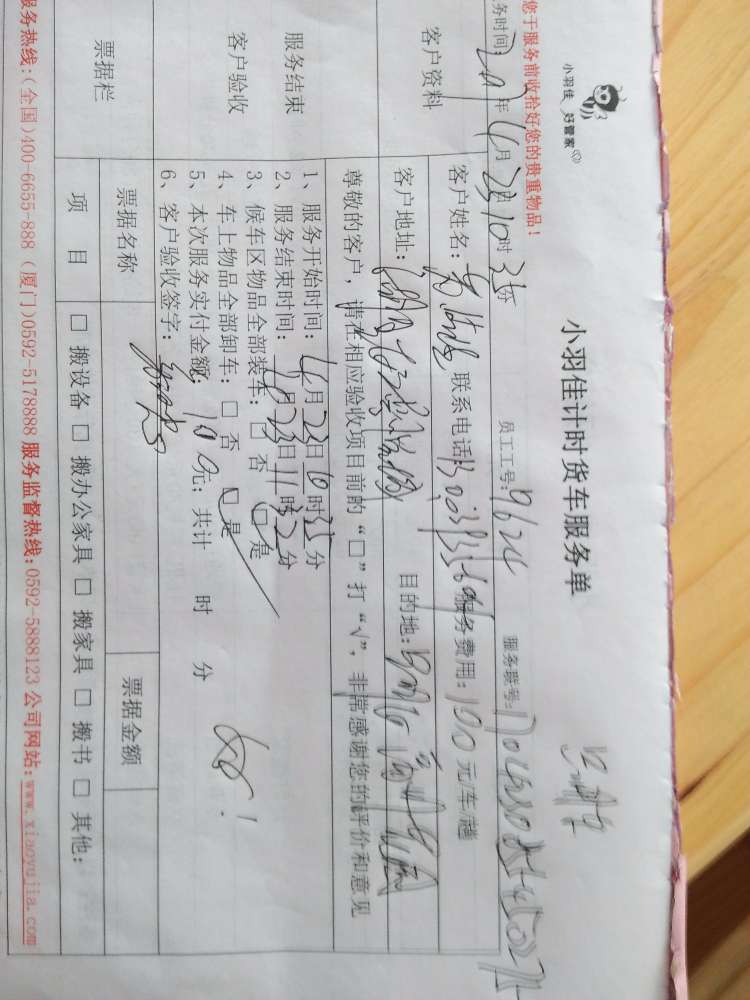 小羽佳 好管家
小羽佳计时货车服务单
您于服务前收拾好您的贵重物品！
务时间： 年 4月 23 10时 35分 员工工号：9624 服务联号：
客户资料
客户姓名： 联系电话 服务费用：100 元/车/趟
客户地址： 目的地：
服务结束
客户验收
尊敬的客户，请在相应验收项目前的“□”打“√”，非常感谢您的评价和意见
1、服务开始时间：4月 23日 10时 35分
2、服务结束时间：4月 23日 11时 32分
3、候车区物品全部装车：□ 否 □ 是
4、车上物品全部卸车：□ 否 □ 是
5、本次服务实付金额：100元；共计 时 分
6、客户验收签字：
票据栏
票据名称 票据金额
项 目 □ 搬设备 □ 搬办公家具 □ 搬家具 □ 搬书 □ 其他：
服务热线：(全国)400-6655-888 (厦门)0592-5178888 服务监督热线：0592-5888123 公司网站：www.xiaoyujia.com